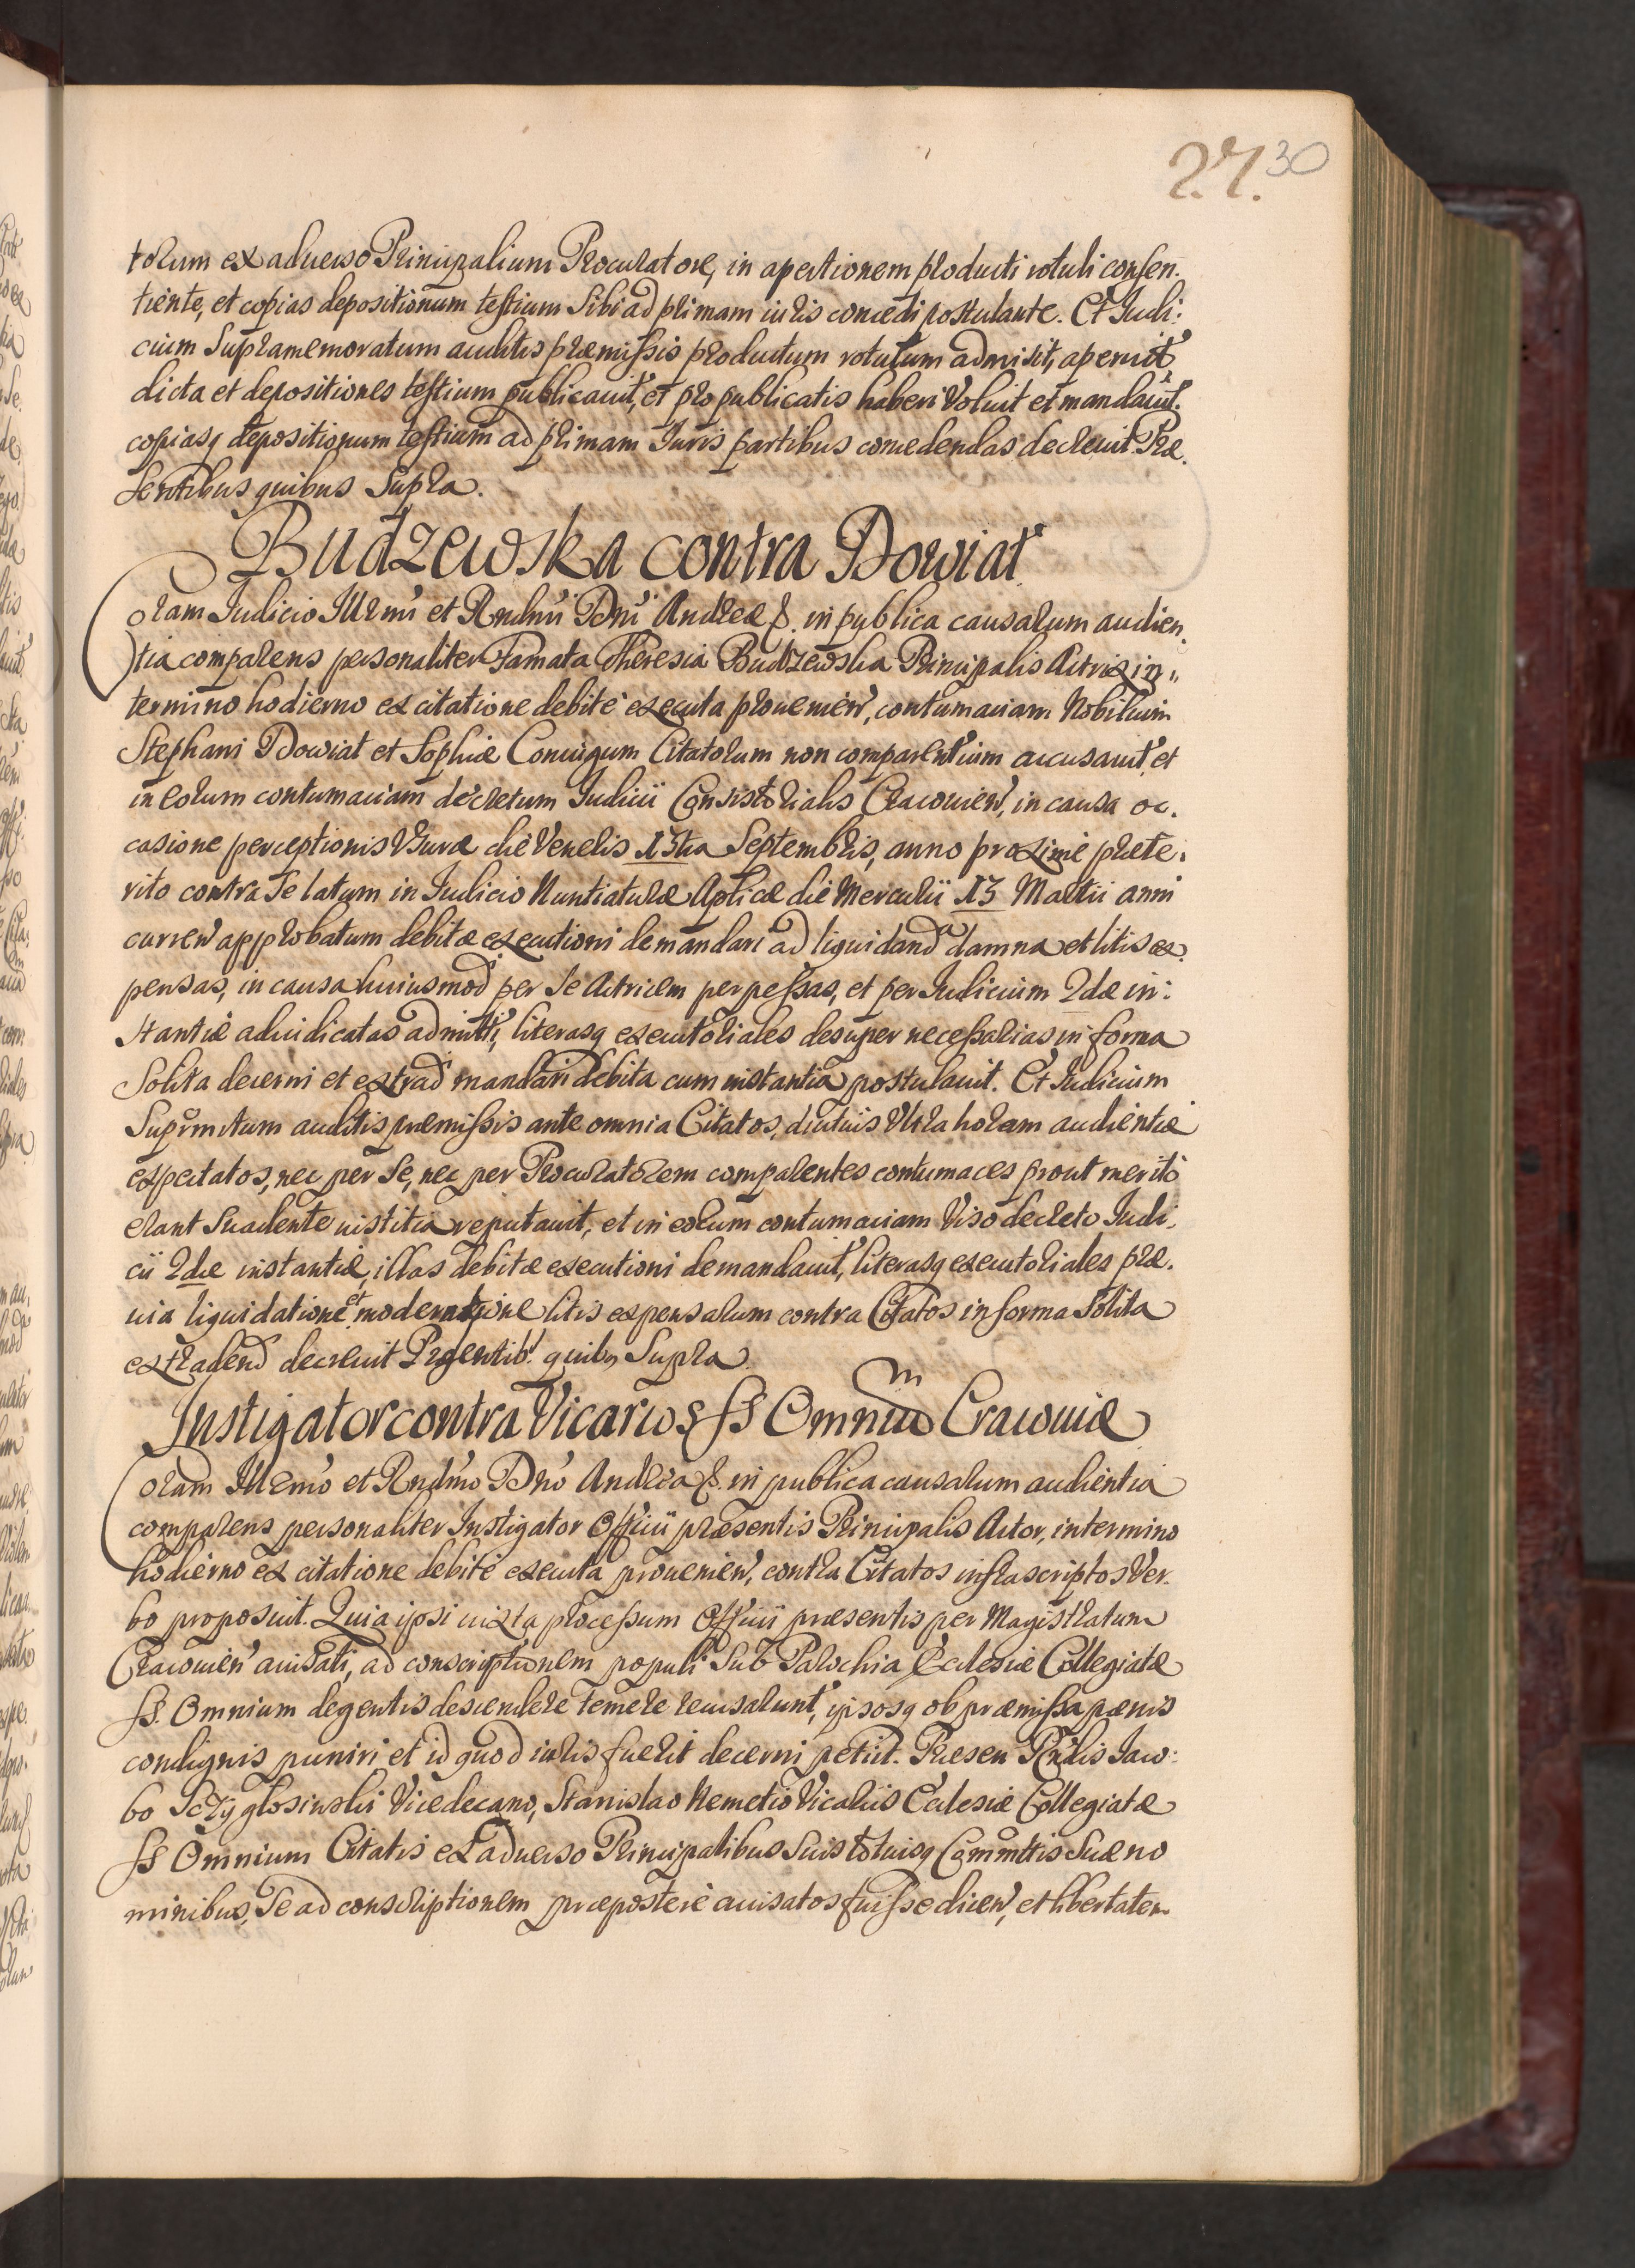 27. 30
torum ex aduerso Principalium Procuratore, in apertionem producti rotuli consen.
tiente, et copias depositionum testium sibi ad primam iuris concedi postulante. Et Iudi:
cium supramemoratum auditis præmissis productum rotulum admisit, aperuit,
dicta et depositiones testium publicauit, et pro publicatis haberi voluit et mandauit.
copiasq depositionum testium ad primam Iuris partibus concedendas decreuit. Præ.
sentibus quibus supra.
Budzewska contra Dowiat
Coram Iudicio Illrmi et Rndmi Dni Andreæ &. in publica causarum audien.
tia comparens personaliter Famata Theresia Budzewska Principalis Actrix in,,
termino hodierno ex citatione debite executa prouenien, contumaciam Nobilium
Stephani Dowiat et Sophiæ Coniugum Citatorum non comparentium accusauit, et
in eorum contumaciam decretum Iudicii Consistorialis Cracouien, in causa oc.
casione perceptionis Vsuræ die Veneris 13tia Septembris, anno proxime præte.
rito contra se latum in Iudicio Nuntiaturæ Aplicæ die Mercurii 13 Martii anni
curren approbatum debitæ executioni demandari ad liquidand damna et litis ex
pensas, in causa huiusmod per se Actricem perpessas, et per Iudicium 2dæ in:
stantiæ adiudicatas admitti, literasq executoriales desuper necessarias in forma
solita decerni et extrad mandari debita cum instantia postulauit. Et Iudicium
suprmttum auditis præmissis ante omnia Citatos, diutius vltra horam audientiæ
expectatos, nec per se, nec per Procuratorem comparentes contumaces prout merito
erant suadente iustitia reputauit, et in eorum contumaciam viso decreto Iudi,
cii 2dæ instantiæ, illas debitæ executioni demandauit, literasq executoriales præ.
uia liquidatione et moderatione litis expensarum contra Citatos in forma solita
extradend decreuit Prsentib quibus supra
Instigator contra Vicarios SS Omnium Cracouiæ
Coram Illrmo et Rndmo Dno Andrea &. in publica causarum audientia
comparens personaliter Instigator Officii præsentis Principalis Actor, in termino
hodierno ex citatione debite executa prouenien, contra Citatos infrascriptos ver.
bo proposuit. Quia ipsi iuxta processum Officii præsentis per Magistratum
Cracouien auisati, ad conscriptionem populi sub Parochia Ecclesiæ Collegiatæ
SS. Omnium degentis descendere temere recusarunt, ipsosq ob præmissa pænis
condignis puniri et id quod iuris fuerit decerni petiit. Præsen Rndis Iaco:
bo Sczyglosinski Vicedecano, Stanislao Nemetio Vicariis Ecclesiæ Collegiatæ
SS Omnium Citatis ex aduerso Principalibus suis totiusq Committis suæ no
minibus, se ad conscriptionem præpostere auisatos fuisse dicen, et libertatem